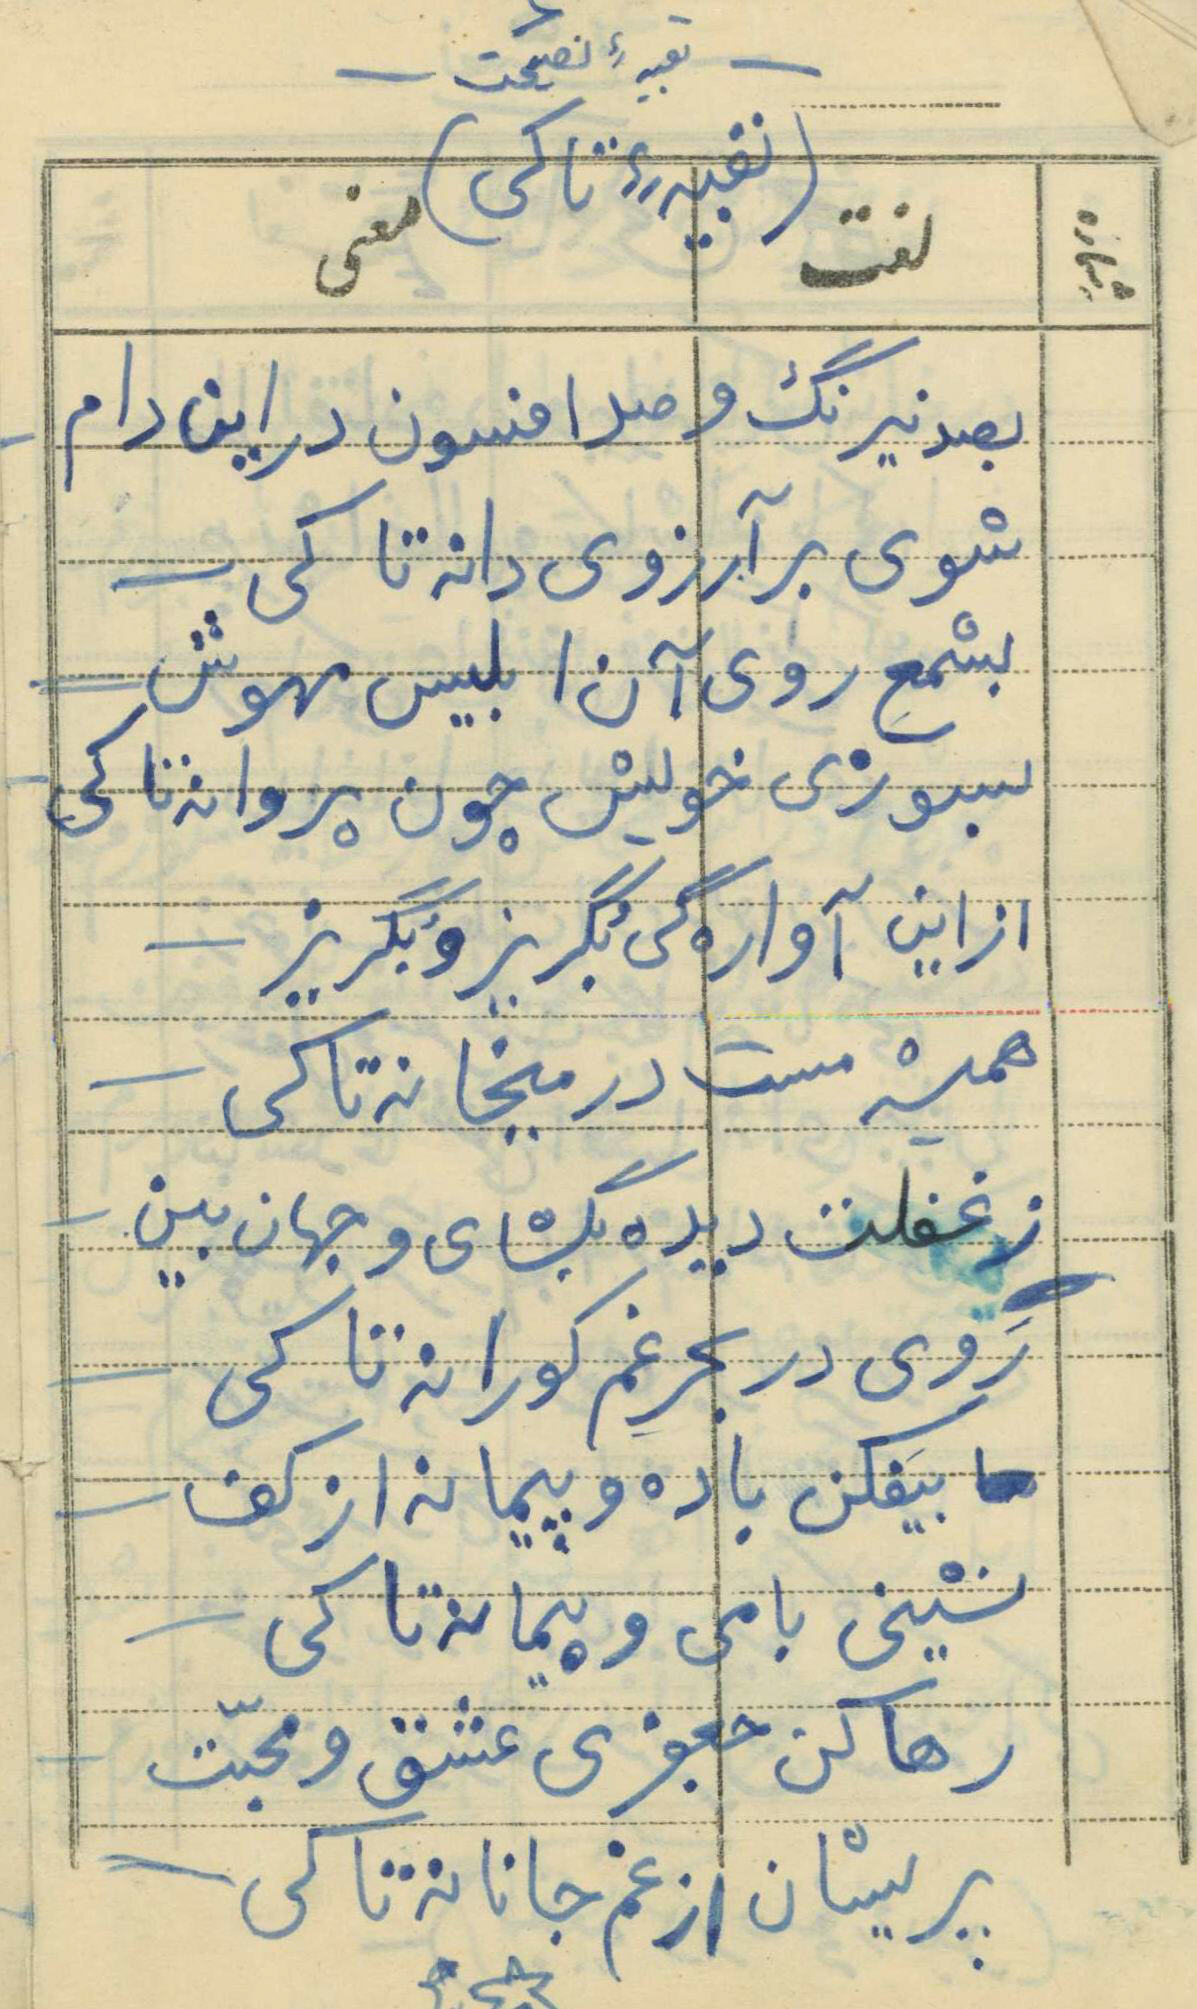 بقیهٔ نصیحت
(بقیهٔ تا کی)
شماره لغت معنی
بصد نیرنگ و صد افسون در این دام
شوی بر آرزوی دانه تا کی
بشمع روی آن ابلیس مهوش
بسوزی خویش چون پروانه تا کی
از این آوارگی بگریز و بگریز
همیشه مست در میخانه تا کی
ز غفلت دیده بگشای و جهان بین
رَوی در بحر غم کورانه تا کی
بیَفکن باده و پیمانه از کف
نشینی با می و پیمانه تا کی
رها کن جعفری عشق و محبّت
پریشان از غم جانانه تا کی